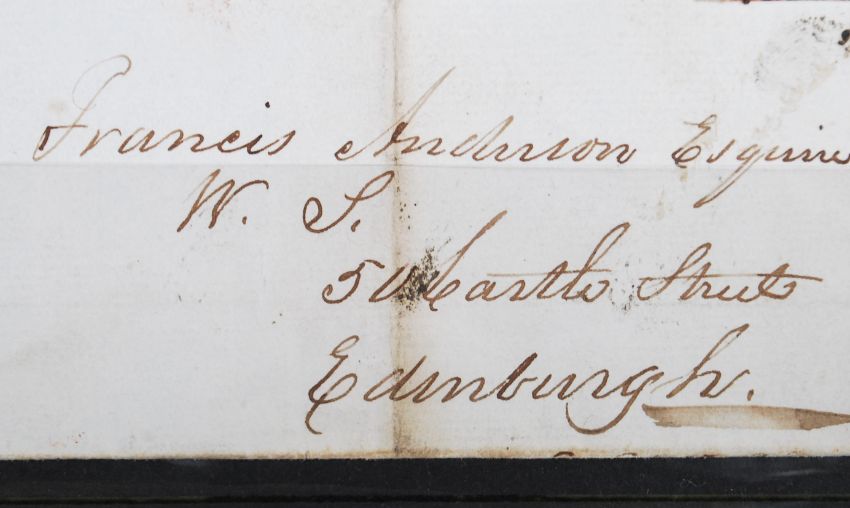 Francis Anderson Esquire
W. S.
50 Castle Street
Edinburgh.